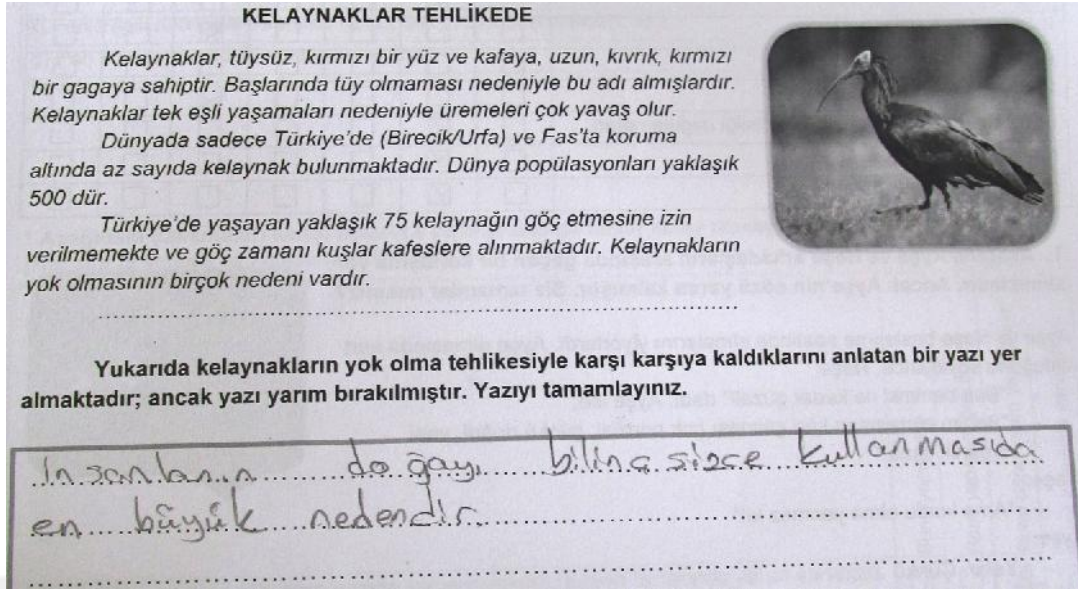 KELAYNAKLAR TEHLİKEDE
Kelaynaklar, tüysüz, kırmızı bir yüz ve kafaya, uzun, kıvrık, kırmızı
bir gagaya sahiptir. Başlarında tüy olmaması nedeniyle bu adı almışlardır.
Kelaynaklar tek eşli yaşamaları nedeniyle üremeleri çok yavaş olur.
Dünyada sadece Türkiye'de (Birecik/Urfa) ve Fas'ta koruma
altında az sayıda kelaynak bulunmaktadır. Dünya popülasyonları yaklaşık
500 dür.
Türkiye'de yaşayan yaklaşık 75 kelaynağın göç etmesine izin
verilmemekte ve göç zamanı kuşlar kafeslere alınmaktadır. Kelaynakların
yok olmasının birçok nedeni vardır.
Yukarıda kelaynakların yok olma tehlikesiyle karşı karşıya kaldıklarını anlatan bir yazı yer
almaktadır; ancak yazı yarım bırakılmıştır. Yazıyı tamamlayınız.
İnsanların doğayı bilinçsizce kullanmasıda
en büyük nedendir.